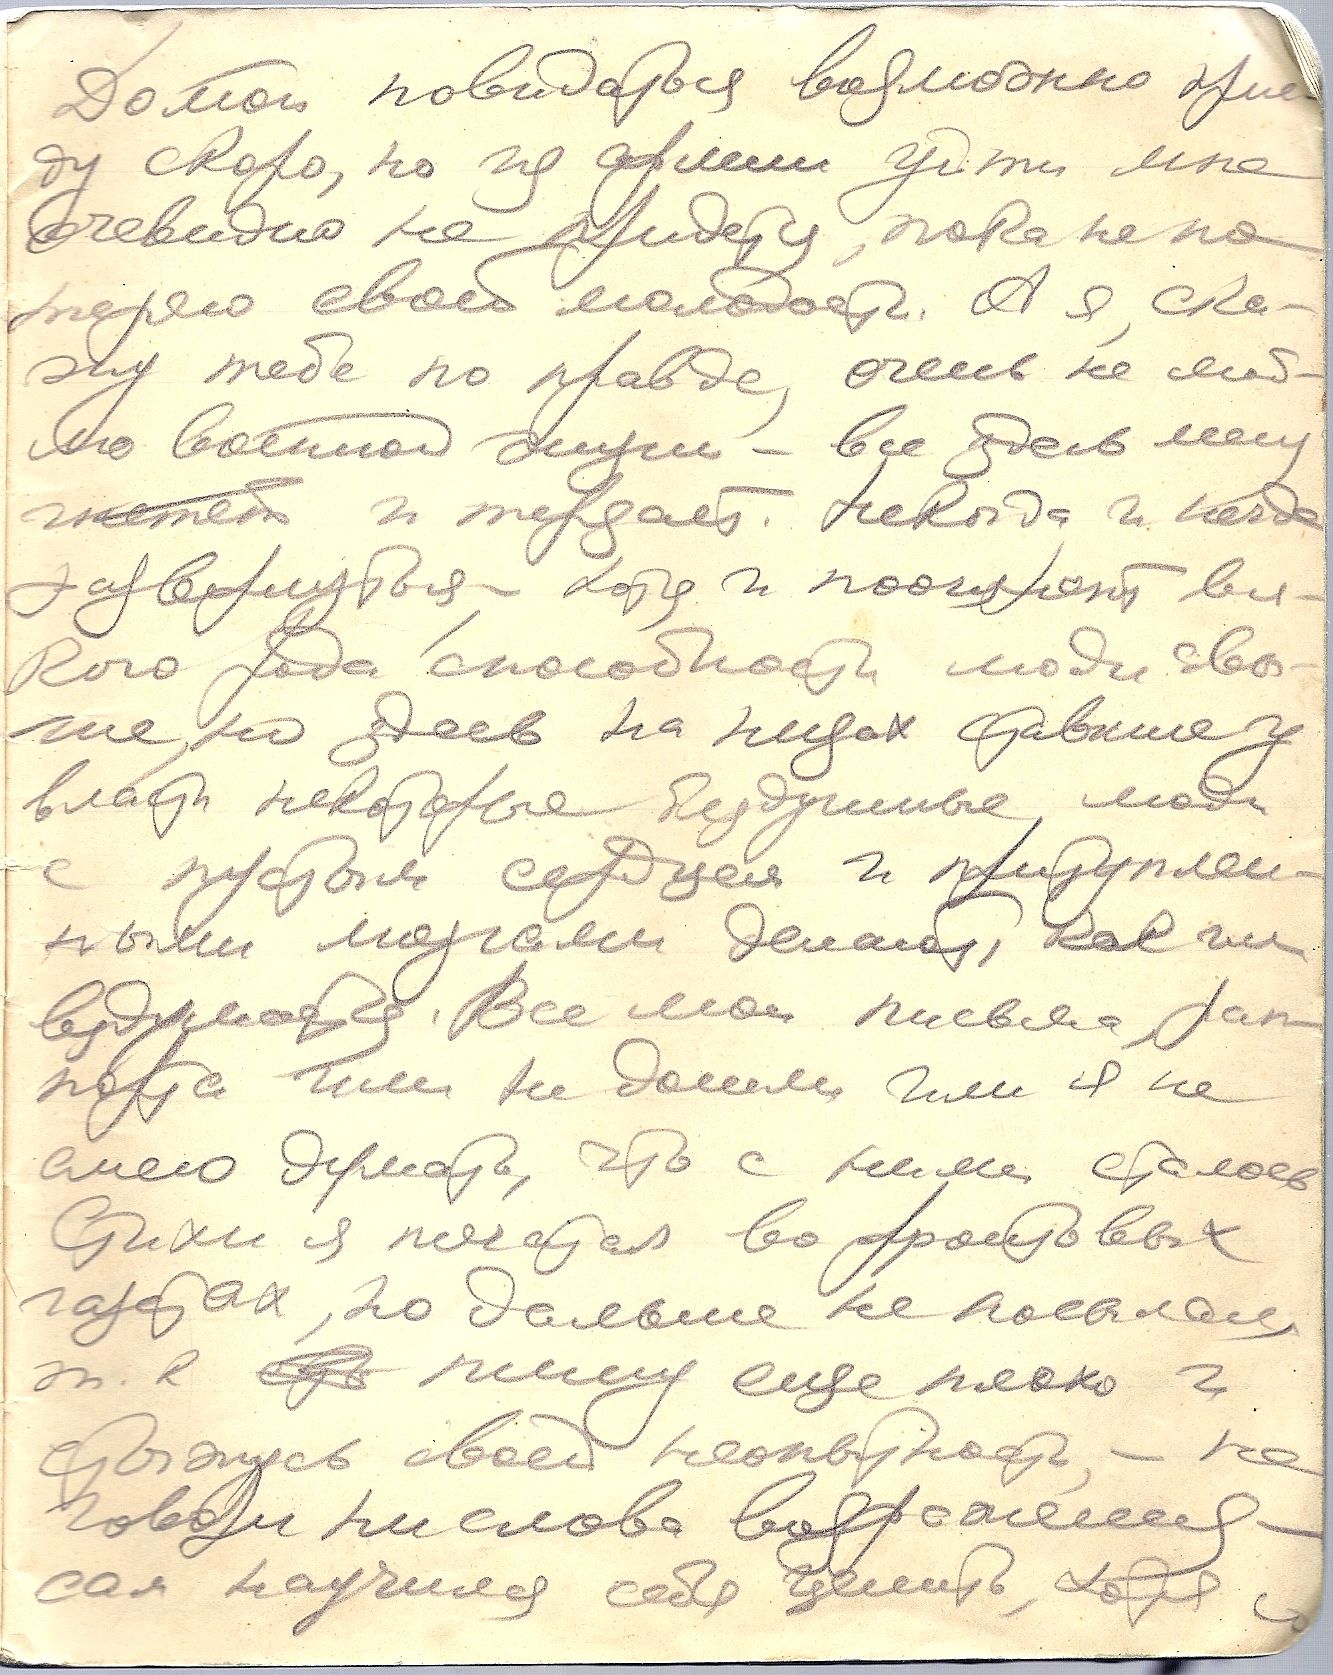 Домой повидаться возможно прие-
ду скоро, но из армии уйти мне
очевидно не придется, пока не по
теряю своей молодости. А я, ска-
жу тебе по правде, очень не люб-
лю военной жизни – все здесь меня
гнетет и терзает. Некогда и негде
развернуться – хотя и поощряют вся-
кого рода способности люди свы-
ше, но здесь на низах ставшие у
власти некоторые бездушные люди
с пустым сердцем и притуплен-
ными мозгами делают, как им
вздумается. Все мои письма, рап-
порта или не дошли или я не
смею думать, что с ними сталось
Стихи я печатал во фронтовых
газетах, но дальше не посылал,
т. к пишу еще плохо и
стыжусь своей неопытности, – не
говори ни слова возражения –
сам научился себя ценить, хотя